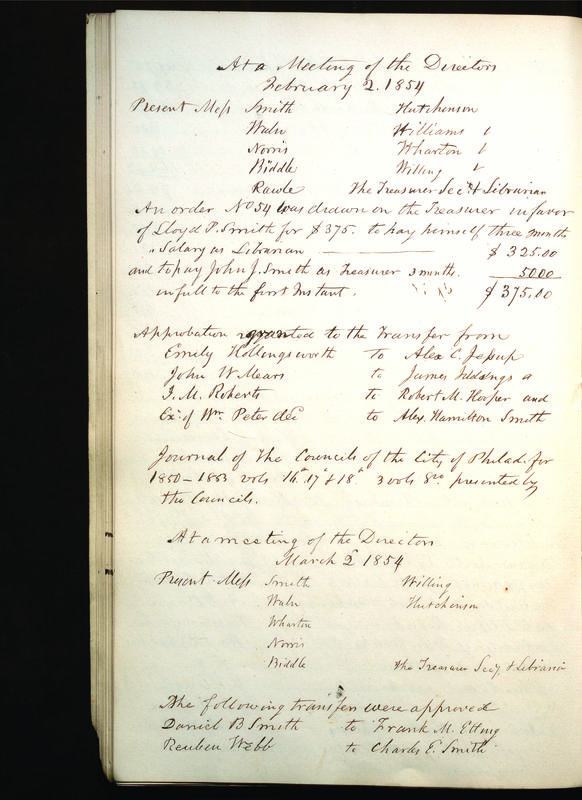 At a Meeting of the Directors
February 2. 1854
Present Mess Smith Hutchinson
Waln Williams
Norris Wharton
Biddle Willing
Rawle The Treasurer Secy & Librarian
An order No 54 was drawn on the Treasurer in favor
of Lloyd P. Smith for $375. to pay himself three months
Salary as Librarian $325.00
and to pay John J. Smith as Treasurer 3 months. 50.00
in full to the first Instant. $375.00
Approbation granted to the transfer from
Emily Hollingsworth To Alex C. Jessup
John W Mears to James Iddings
J. M. Roberts to Robert M. Hooper and
Exr of Wm Peter decd to Alex. Hamilton Smith
Journal of the Councils of the City of Philad. for
1850-1853 vols 16. 17 & 18 3 vols 8vo presented by
the Councils.
At a meeting of the Directors
March 2d 1854
Present Mess Smith Willing
Waln Hutchinson
Wharton
Norris
Biddle the Treasurer Secy & Librarian
The following transfers were approved
Daniel B Smith to Frank M. Etting
Reuben Webb to Charles E. Smith